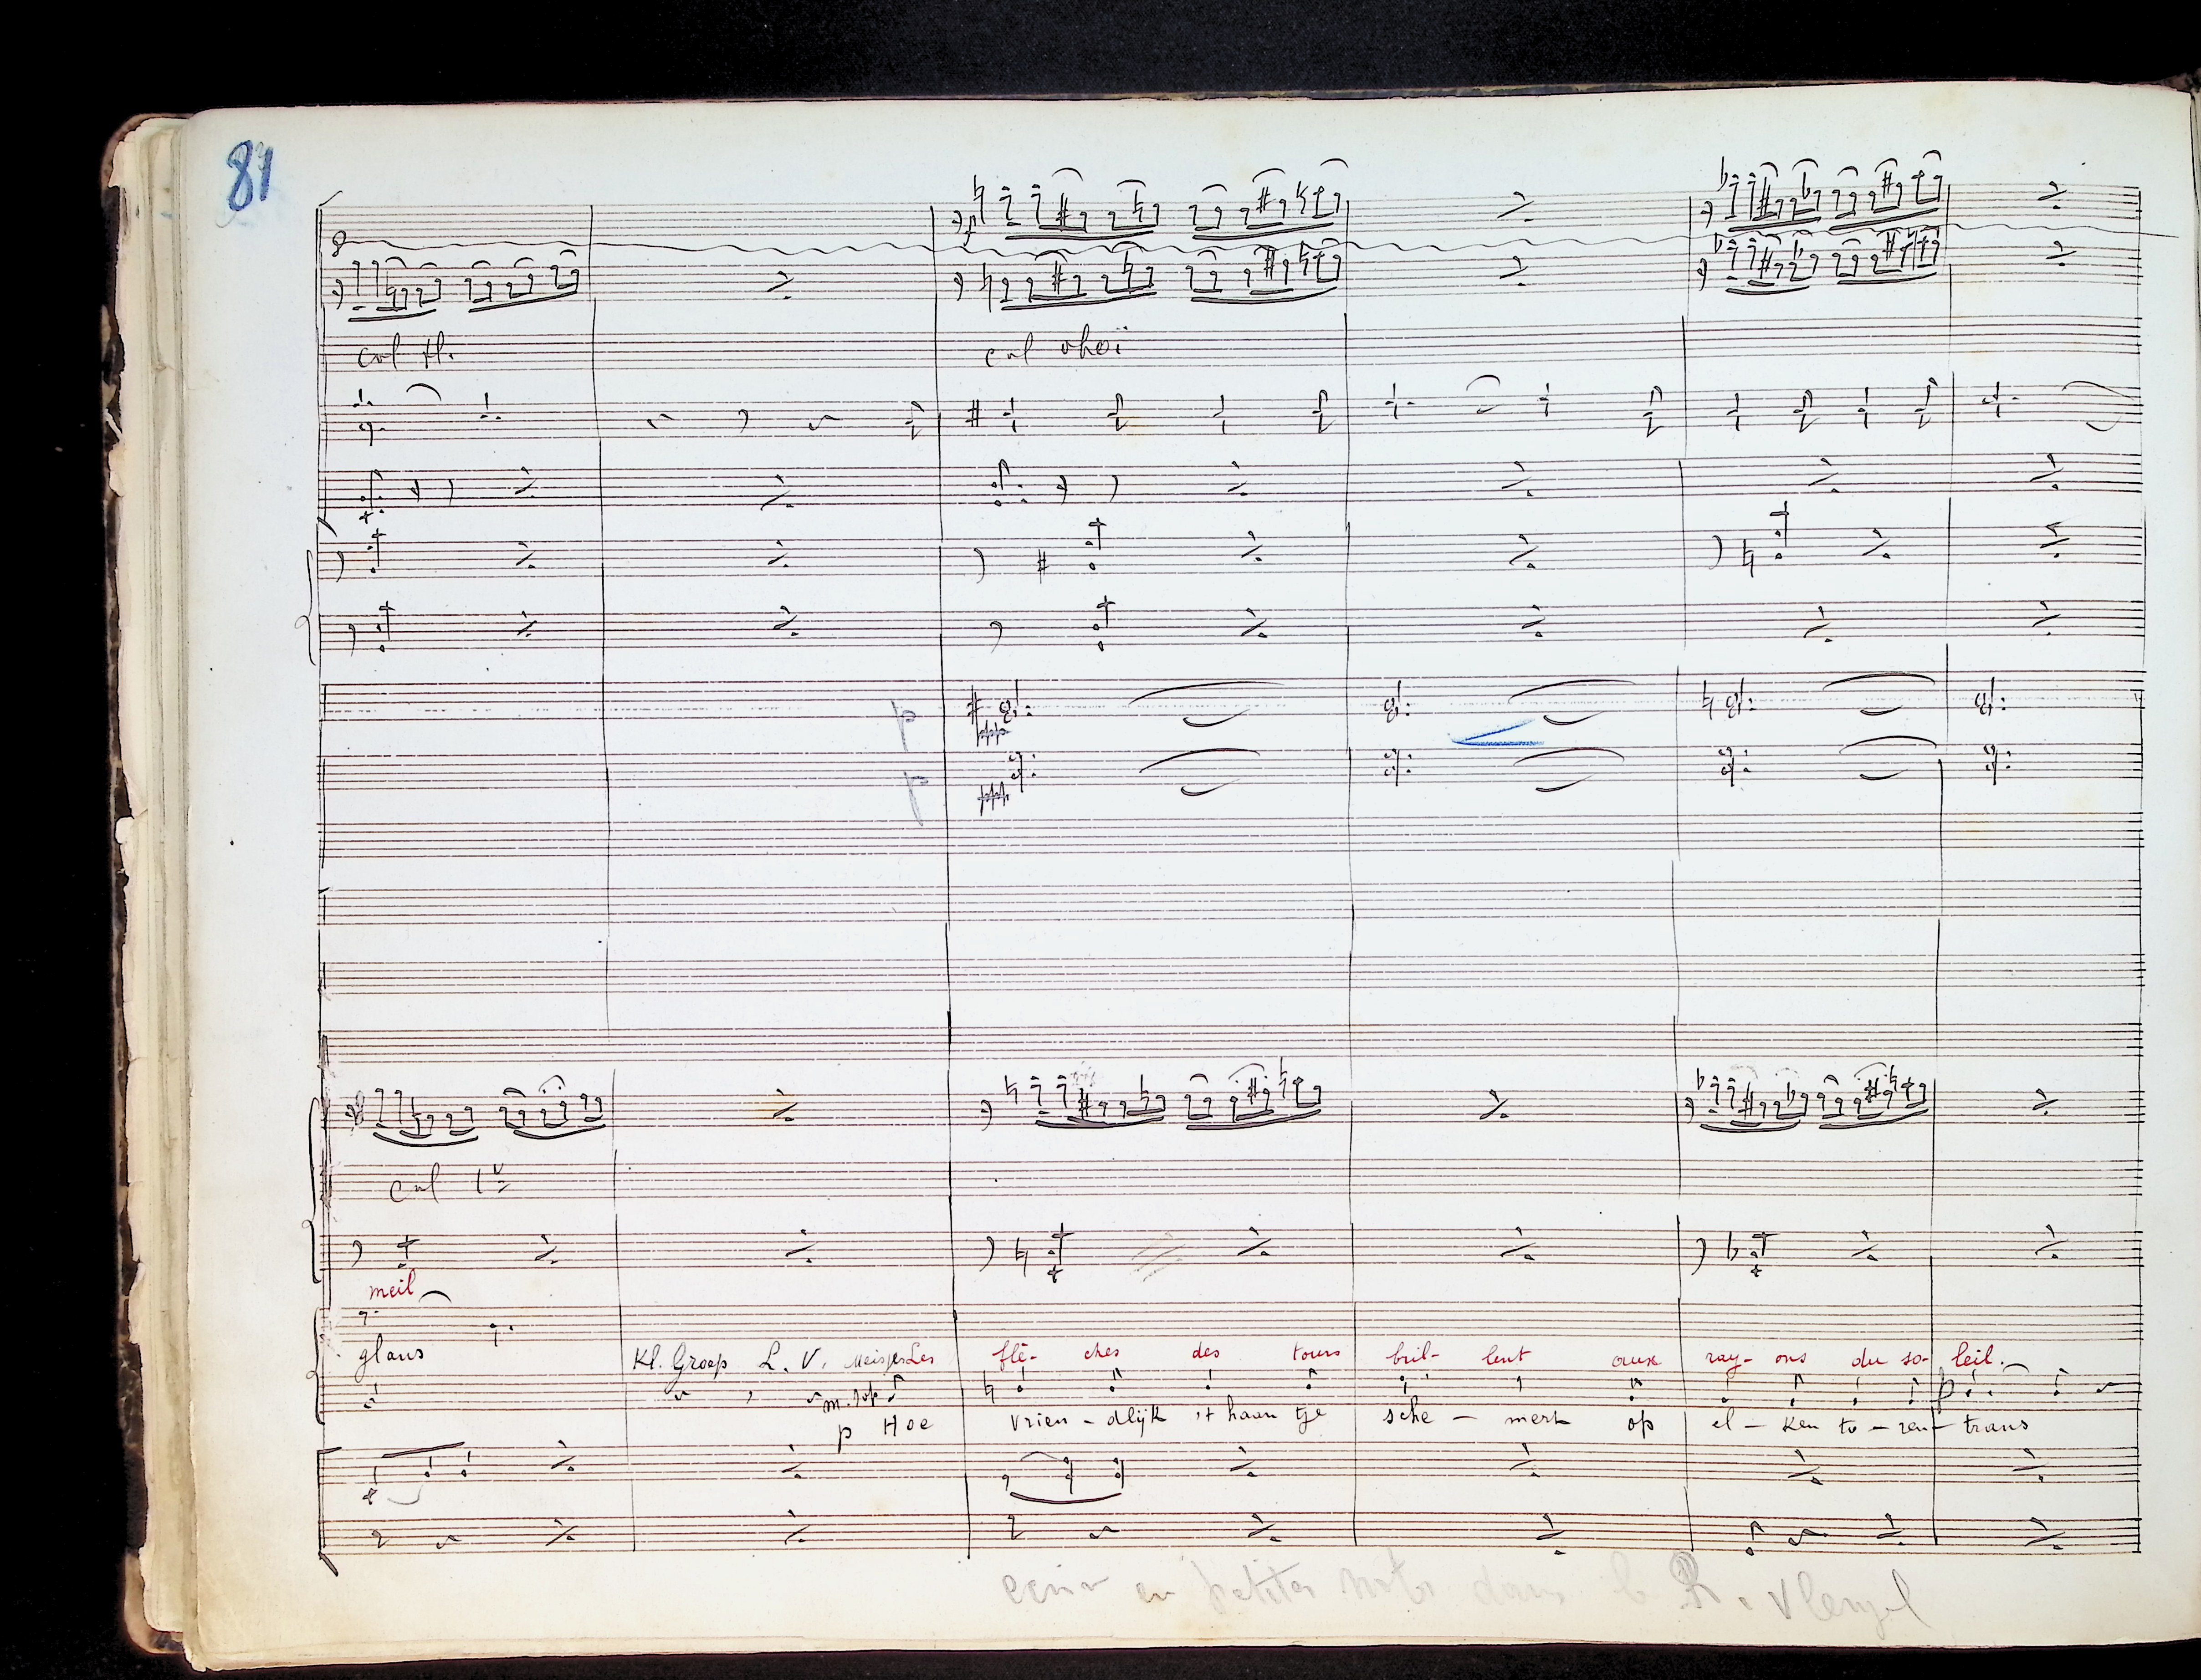 81
8
f
col fl.
col oboï
p
ppp
p
ppp
col 1º
meil
glans
Kl. Groep L. V. Meisjes Les flè- ches des tours bril- lent aux ray- ons du so- leil.
m. sop
p
p Hoe vrien - dlijk 't haan tje sche - mert op el - ken to - ren - trans
en petites notes dans le R.